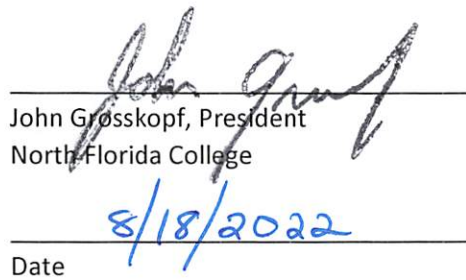 John Grosskopf, President
North Florida College
8/18/2022
Date